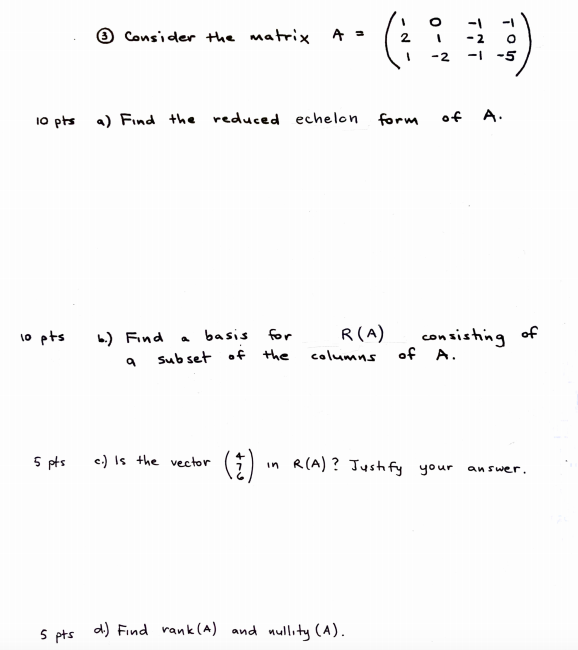 ③ Consider the matrix A = ( 1 0 -1 -1
2 1 -2 0
1 -2 -1 -5 )
10 pts a) Find the reduced echelon form of A.
10 pts b.) Find a basis for R(A) consisting of
a subset of the columns of A.
5 pts c.) Is the vector ( 4 7 6 ) in R(A)? Justify your answer.
5 pts d.) Find rank(A) and nullity (A).